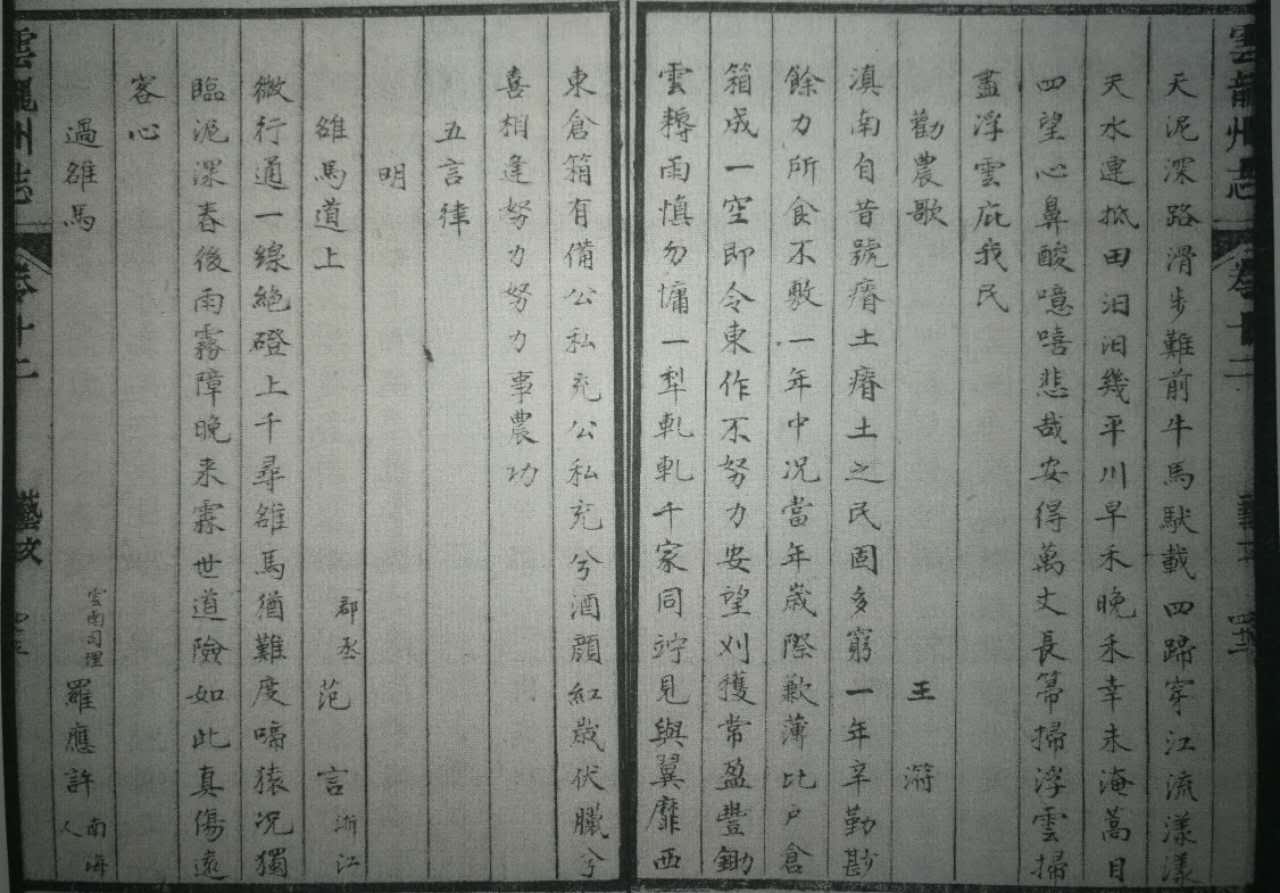 雲龍州志 卷十二
天泥深路滑步難前牛馬馱載四蹄穿江流漾漾
天水連抵田汨汨幾平川早禾晚禾幸未淹蒿目
四望心鼻酸噫嘻悲哉安得萬丈長箒掃浮雲掃
盡浮雲庇我民
勸農歌 王㵂
滇南自昔號瘠土瘠土之民固多窮一年辛勤尠
餘力所食不敷一年中况當年歲際歉薄比户倉
箱成一空即令東作不努力安望刈獲常盈豐鋤
雲耨雨慎勿慵一犁軋軋千家同竚見與翼靡西
東倉箱有備公私充公私充兮酒顔紅歲伏臘兮
喜相逢努力努力事農功
五言律
明
雒馬道上 郡丞 范言 浙江
微行通一線絶磴上千尋雒馬猶難度啼猿况獨
臨泥深春後雨霧障晚来霖世道險如此真傷遠
客心
過雒馬 雲南司理 羅應許 南海人
雲龍州志 卷十二 藝文